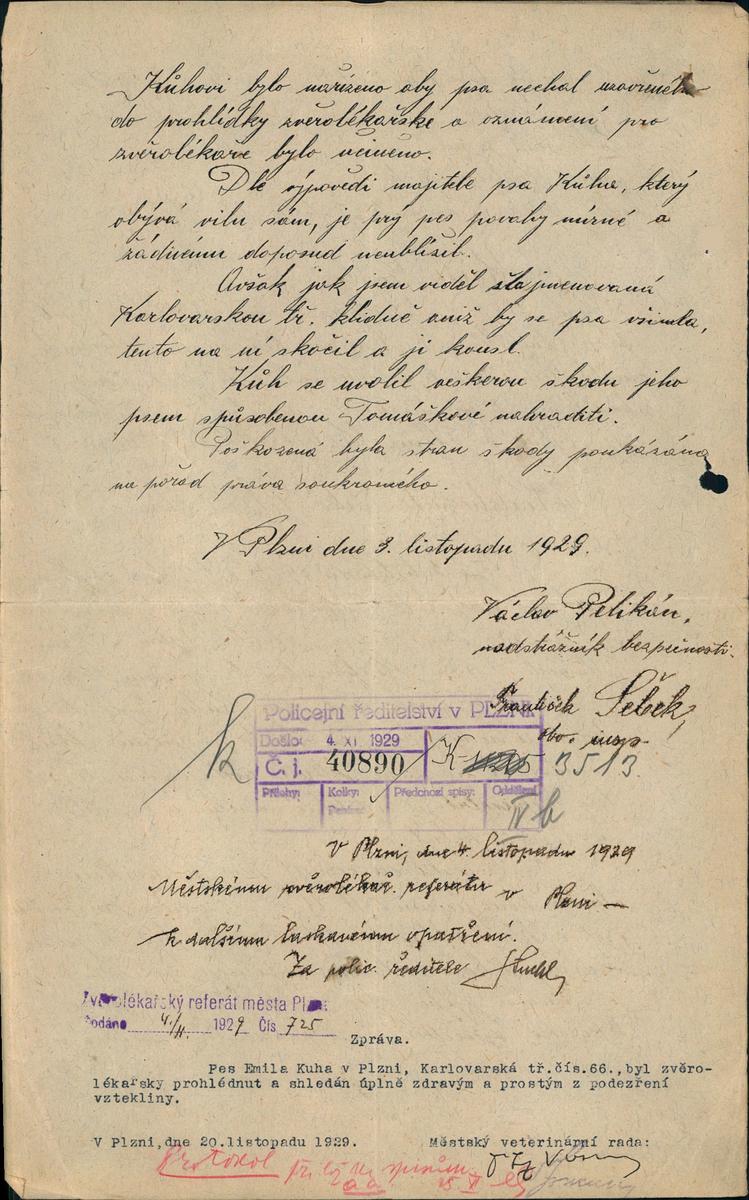 Kůhovi bylo nařízeno aby psa nechal uzavřeného
do prohlídky zvěrolékařske a oznámení pro
zvěrolékaře bylo učiněno.
Dle výpovědi majitele psa Kůha, který
obývá vilu sám, je prý pes povahy mírné a
žádnému doposud neublížil.
Avšak jak jsem viděl šla jmenovaná
Karlovarskou tř. klidně aniž by se psa všimla,
tento na ní skočil a jí kousl.
Kůh se uvolil veškerou škodu jeho
psem spůsobenou Tomáškové nahraditi.
Poškozená byla stran škody poukázána
na pořad práva soukromého.
V Plzni dne 3. listopadu 1929.
Václav Pelikán,
nadstrážník bezpečnosti.
František Šebek,
obv. insp.
Policejní ředitelství v PLZNI
Došlo: 4. XI. 1929
Č. j. 40890 K 3513.
Přílohy: Kolky: Předchozí spisy: Oddělení
IV b
V Plzni, dne 4. listopadu 1929
Městskému zvěrolékař. referátu v Plzni —
k dalšímu laskavému opatření.
Za polic. ředitele
Zvěrolékařský referát města Plzně
Podáno 4./11. 1929 Čís. 725
Zpráva.
Pes Emila Kuha v Plzni, Karlovarská tř.čís.66.,byl zvěro-
lékařsky prohlédnut a shledán úplně zdravým a prostým z podezření
vztekliny.
V Plzni,dne 20.listopadu 1929. Městský veterinární rada:
Protokol
a.a.